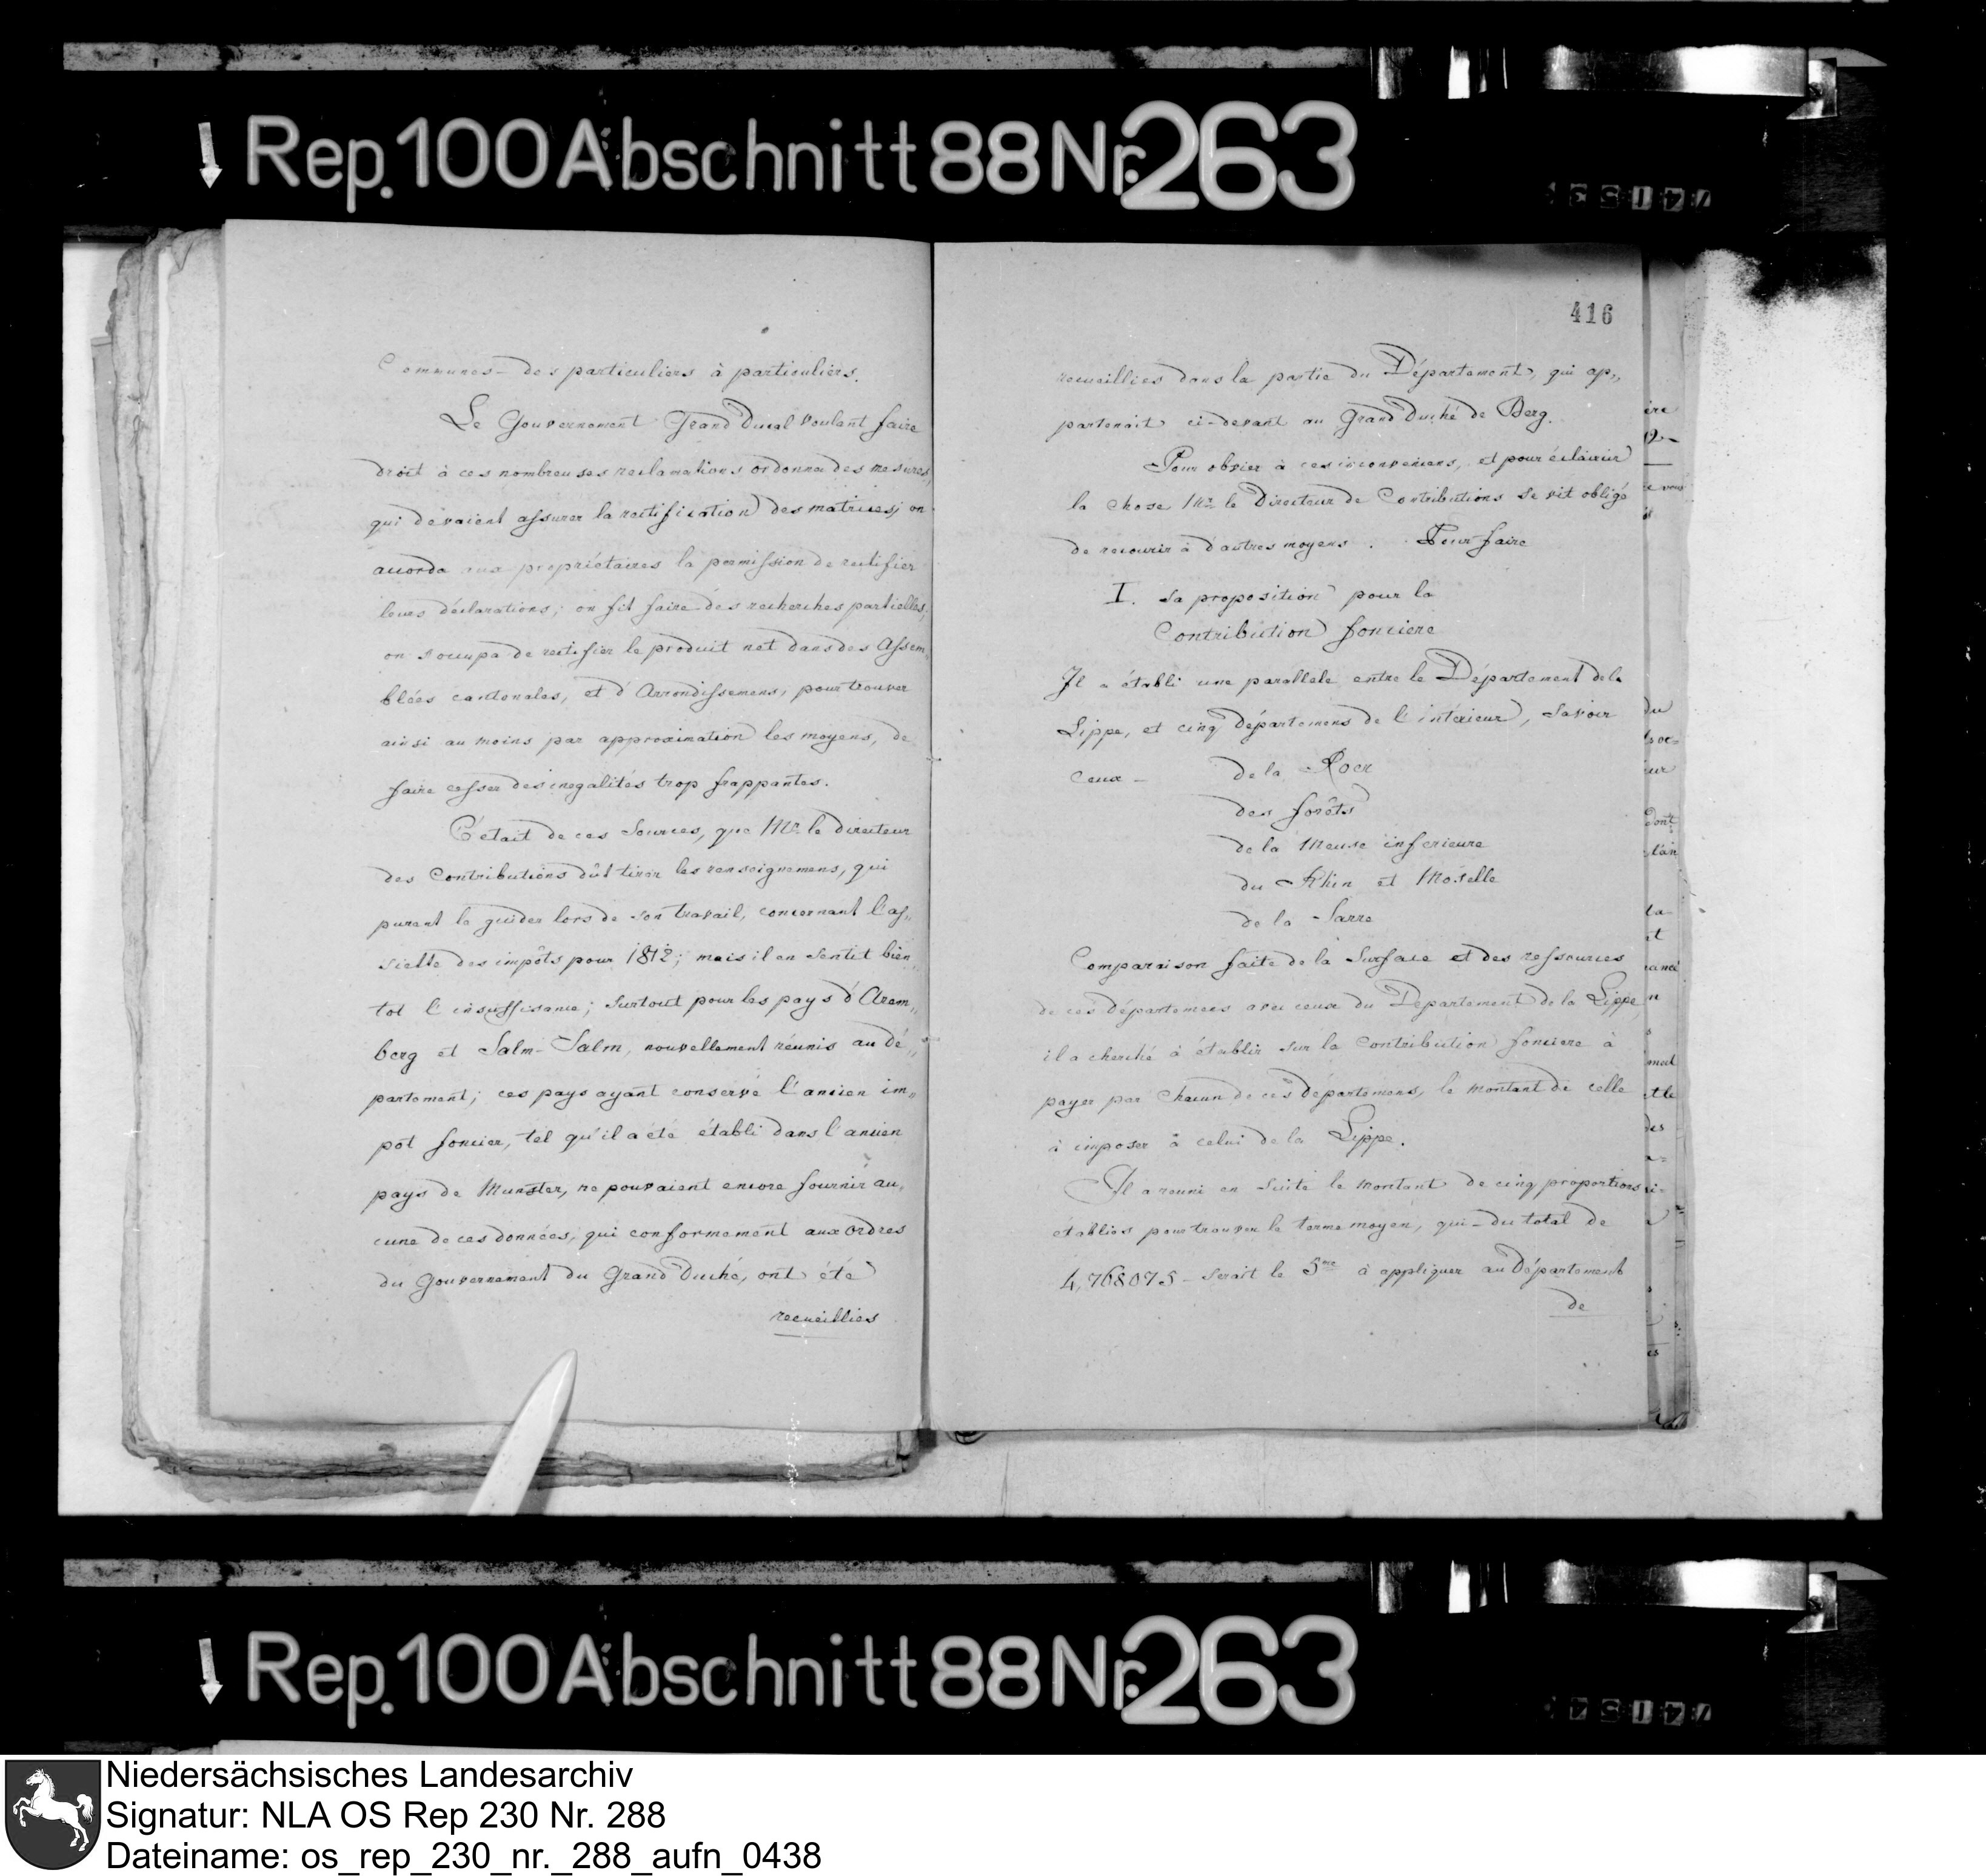 Rep. 100 Abschnitt 88 Nr. 263
Communes – des particuliers à particuliers.
Le Gouvernement Grand Ducal voulant faire
droit à ces nombreuses reclamations ordonna des mesures,
qui devaient assurer la rectification des matrices; on
accorda aux propriétaires la permission de rectifier
leurs déclarations; on fit faire des recherches partielles,
on s'occupa de rectifier le produit net dans des Assem„
blées cantonales, et d'Arrondissemens, pour trouver
ainsi au moins par approximation les moyens, de
faire cesser des inegalités trop frappantes.
C'était de ces Sources, que Mr. le directeur
des Contributions dût tirer les renseignemens, qui
purent le guider lors de son travail, concernant l'as„
siette des impôts pour 1812; mais il en sentit bien„
tot l'insuffisance; surtout pour les pays d'Arem„
berg et Salm-Salm, nouvellement réunis au dé„
partement; ces pays ayant conservé l'ancien im„
pôt foncier, tel qu'il a été établi dans l'ancien
pays de Munster, ne pouvaient encore fournir au„
cune de ces données, qui conformement aux ordres
du Gouvernement du Grand Duché, ont été
recueillies
416
recueillies dans la partie du Département, qui ap„
partenait ci-devant au Grand Duché de Berg.
Pour obvier à ces inconveniens, et pour éclaircir
la chose Mr. le Directeur de Contributions se vit obligé
de recourir à d'autres moyens. Pour faire
I. sa proposition pour la
Contribution fonciere
Il a établi une parallele entre le Département de la
Lippe, et cinq départemens de l'intérieur, savoir
ceux – de la Roer
des forêts
de la Meuse inferieure
du Rhin et Moselle
de la Sarre
Comparaison faite de la Surface et des ressources
de ces départemens avec ceux du Departement de la Lippe
il a cherché à établir sur la Contribution fonciere à
payer par chacun de ces départemens, le montant de celle
à imposer à celui de la Lippe.
Il a reuni en suite le montant de cinq proportions
établies pour trouver le terme moyen, qui – du total de
4,768075 – serait le 5me à appliquer au Département
de
Rep. 100 Abschnitt 88 Nr. 263
Niedersächsisches Landesarchiv
Signatur: NLA OS Rep 230 Nr. 288
Dateiname: os_rep_230_nr._288_aufn_0438